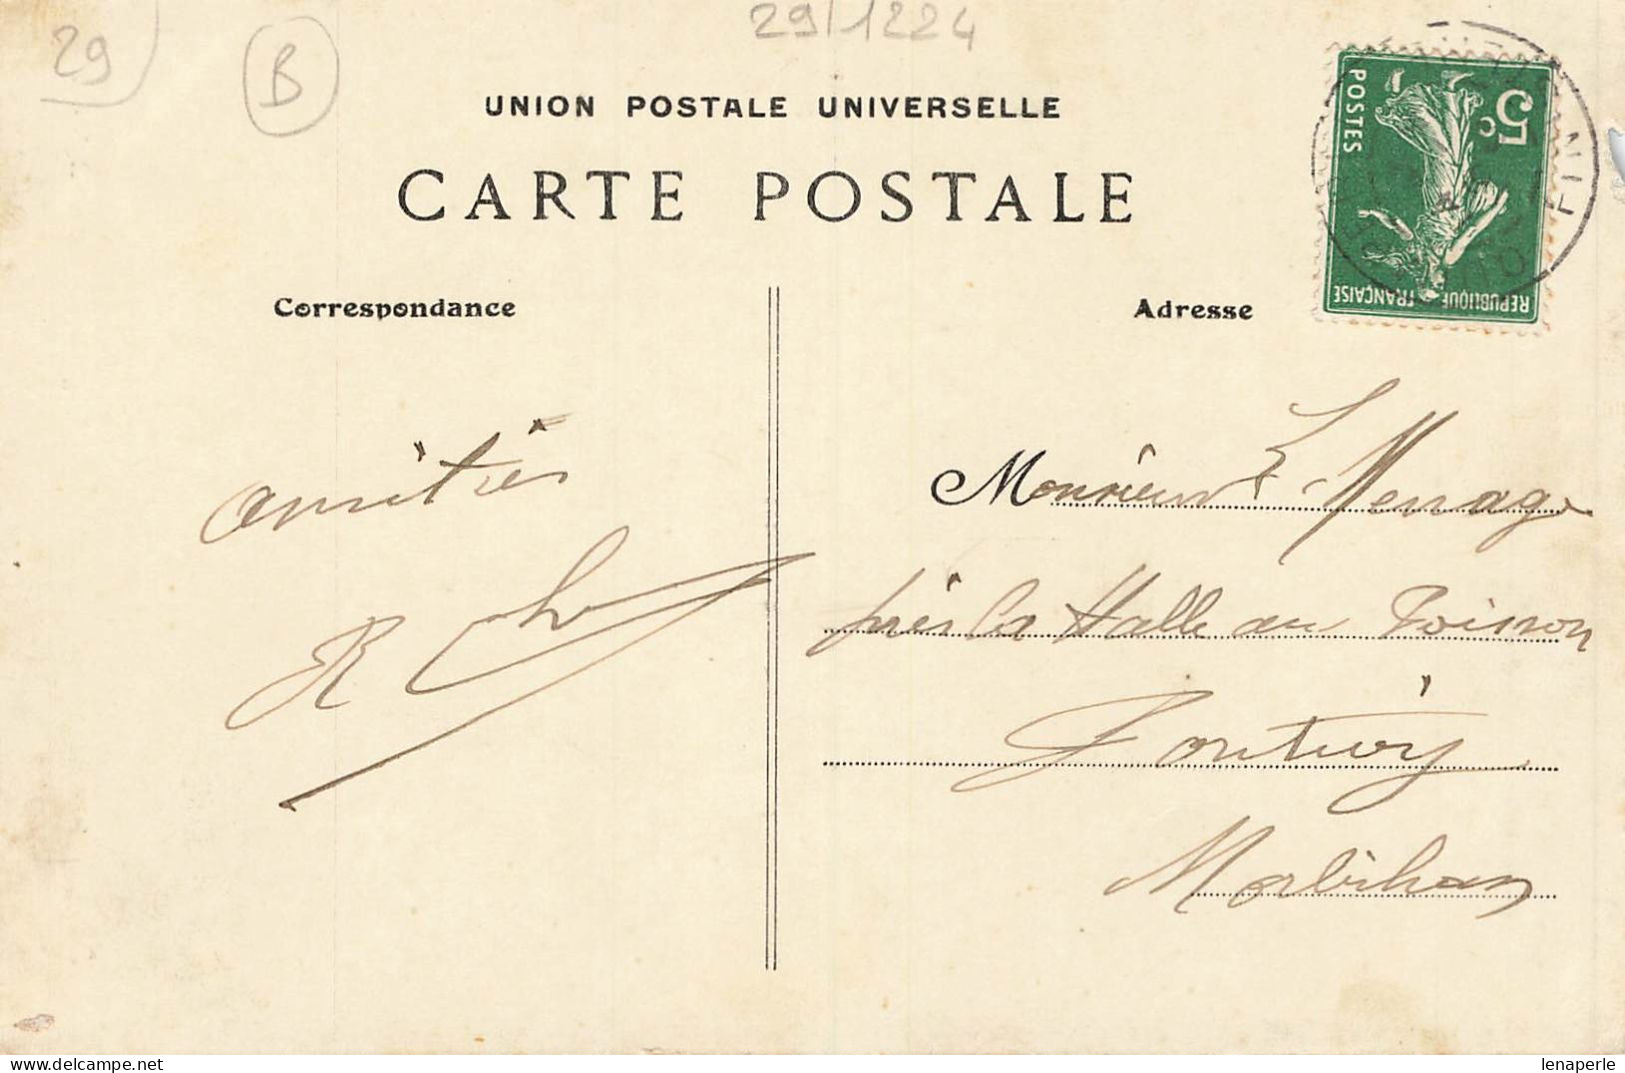 29
B
29/1224
UNION POSTALE UNIVERSELLE
CARTE POSTALE
Correspondance
Adresse
5c
POSTES
REPUBLIQUE FRANÇAISE
FIN
amitiés
R
Monsieur L. Menage
près la Halle au Poisson
Pontivy
Morbihan
www.delcampe.net
lenaperle